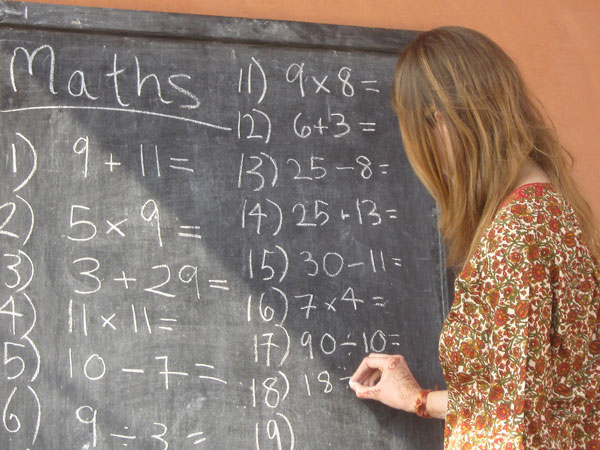 Maths
1) 9 + 11 =
2) 5 × 9 =
3) 3 + 29 =
4) 11 × 11 =
5) 10 - 7 =
6) 9 ÷ 3 =
11) 9 × 8 =
12) 6 + 3 =
13) 25 - 8 =
14) 25 + 13 =
15) 30 - 11 =
16) 7 × 4 =
17) 90 ÷ 10 =
18) 18 ÷
19)